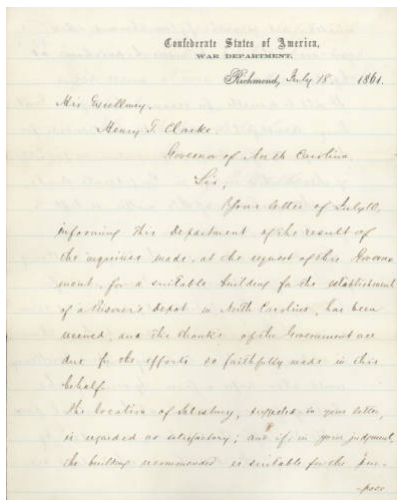 Confederate States of America,
WAR DEPARTMENT.
Richmond, July 18 1861.
His Excellency,
Henry T. Clarke
Governor of North Carolina
Sir,
Your letter of July 10,
informing this Department of the result of
the inquiries made, at the request of this Govern-
ment, for a suitable building for the establishment
of a Prisoner's Depot in North Carolina, has been
received, and the thanks of the Government are
due for the efforts so faithfully made in this
behalf.
The location of Salisbury, suggested in your letter,
is regarded as satisfactory; and if, in your judgment,
the building recommended is suitable for the pur-
-pose